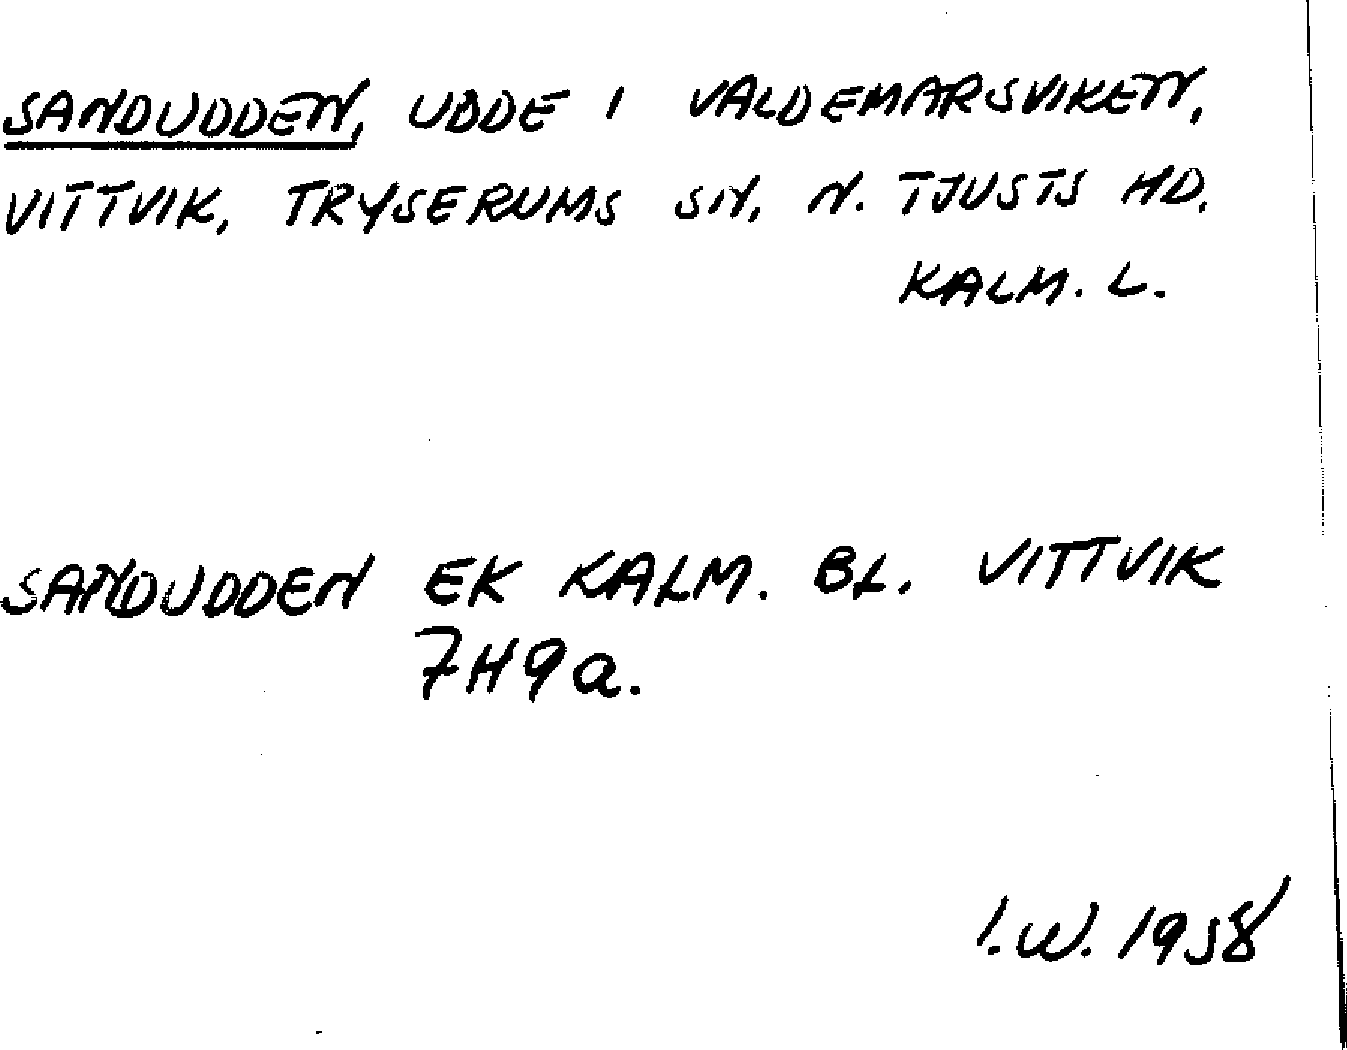 SANDUDDEN, UDDE I VALDEMARSVIKEN,
VITTVIK, TRYSERUMS SN, N. TJUSTS HD.
KALM. L.
SANDUDDEN EK KALM. BL. VITTVIK
7H9a.
I.W. 1958